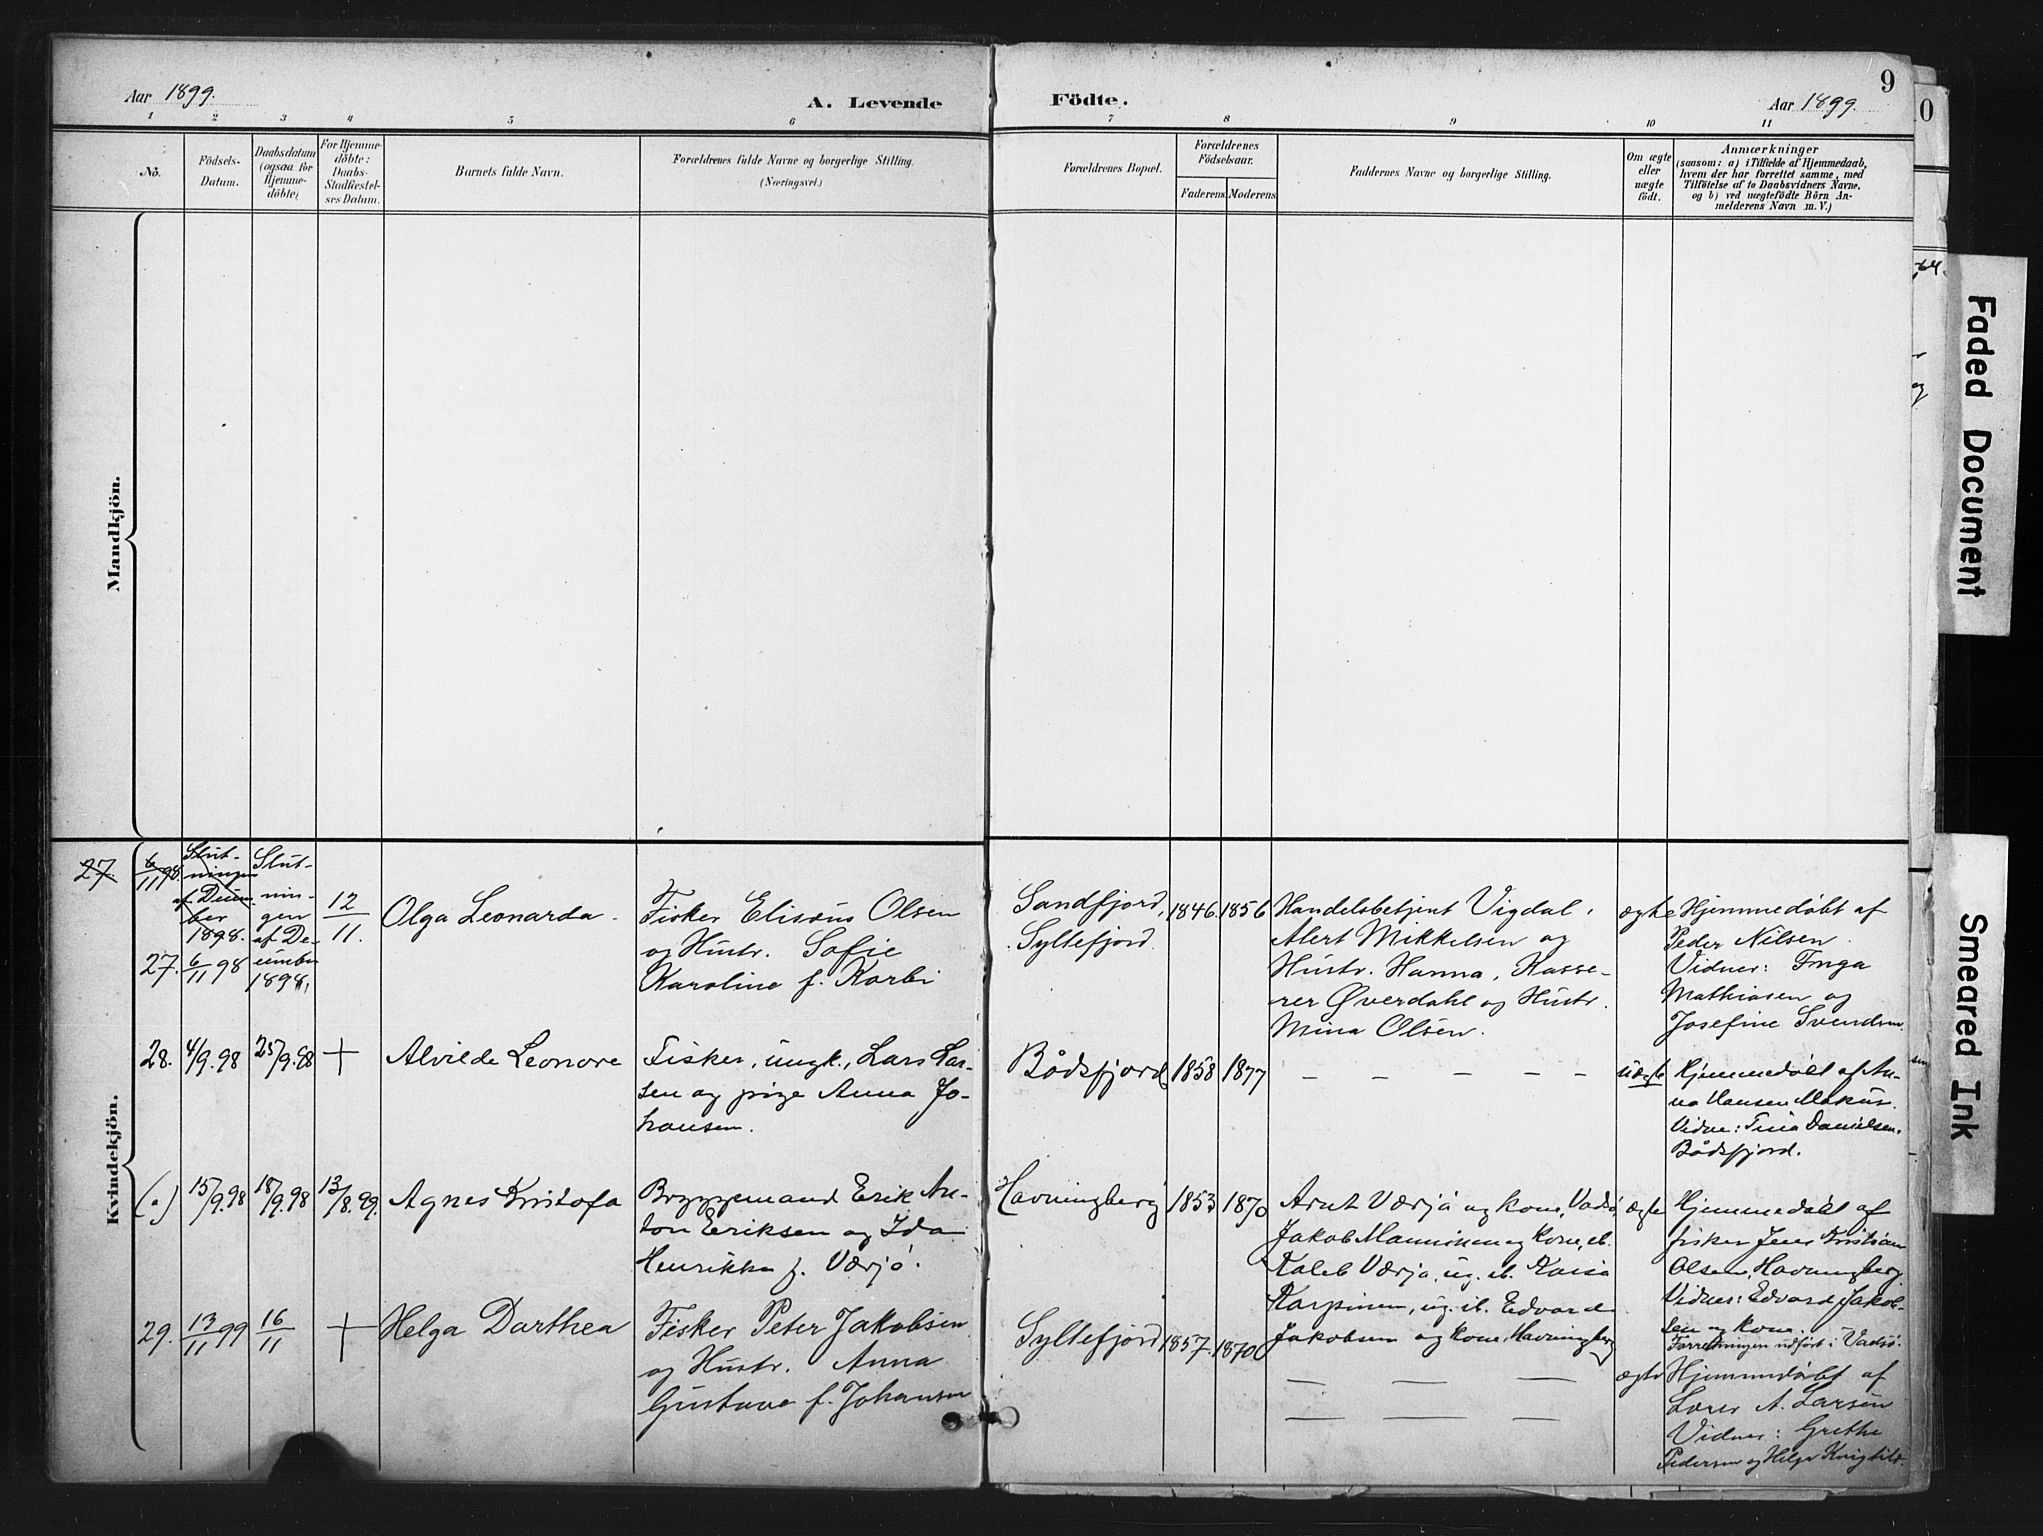 Aar 1899.
A. Levende
Födte.
9
Aar 1899.
1 2 3 4 5 6 7 8 9 10 11
No.
Födsels-
Datum.
Daabsdatum
(ogsaa for
Hjemme-
döbte)
For Hjemme-
döbte:
Daabs-
Stadfæstel-
ses Datum.
Barnets fulde Navn.
Forældrenes fulde Navne og borgerlige Stilling.
(Næringsvei.)
Forældrenes Bopæl.
Forældrenes
Födselsaar.
Faderens
Moderens
Faddernes Navne og borgerlige Stilling.
Om ægte
eller
uægte
födt.
Anmærkninger
(saasom: a) i Tilfælde af Hjemmedaab,
hvem der har forrettet samme, med
Tilföielse af to Daabsvidners Navne,
og b) ved uægtefödte Börn An-
melderens Navn m. V.)
Mandkjön.
Kvindekjön.
27.
6/11 98.
Slut-
ningen
af Decem-
ber
1898.
27.
6/11 98
Slut-
nin-
gen
af De-
cember
1898.
12/11.
Olga Leonarda
Fisker Elisæus Olsen
og Hustr. Sofie
Karoline f. Korbi
Sandfjord,
Syltefjord.
1846.
1856
Handelsbetjent Vigdal,
Alert Mikkelsen og
Hustr. Hanna, Kasse-
rer Øverdahl og Hustr.
Mina Olsen.
ægte
Hjemmedøbt af
Peder Nilsen.
Vidner: Inga
Mathiasen og
Josefine Svendsen
28.
4/9.98
25/9.98
+
Alvilde Leonore
Fisker, ungk., Lars Lar-
sen og pige Anna Jo-
hansen.
Bådsfjord
1858
1877
— — — — —
uægte
Hjemmedøbt af An-
na Hansen Makur.
Vidne: Tina Danielsen,
Bådsfjord.
(a)
15/9.98
18/9.98
13/8.99.
Agnes Kristofa
Bryggemand Erik An-
ton Eriksen og Ida
Henrikke f. Værjø.
Havningberg
1853
1870
Arnt Værjø og kone, Vadsø,
Jakob Manninen og kone, ib.
Kaleb Værjø, ug. ib. Kaisa
Karpinen, ug. ib. Edvard
Jakobsen og kone, Havningberg
ægte
Hjemmedøbt af
fisker Jens Kristian
Olsen, Havningberg.
Vidner: Edvard Jakob-
sen og kone.
Forretningen udført i Vadsø.
29.
13/11 99
16/11
+
Helga Darthea
Fisker Peter Jakobsen
og Hustr. Anna
Gustava f. Johansen
Syltefjord
1857.
1870
— — —
— — —
ægte
Hjemmedøbt af
Lærer A. Larsen
Vidner: Grethe
Pedersen og Helga
Faded Document
Smeared Ink